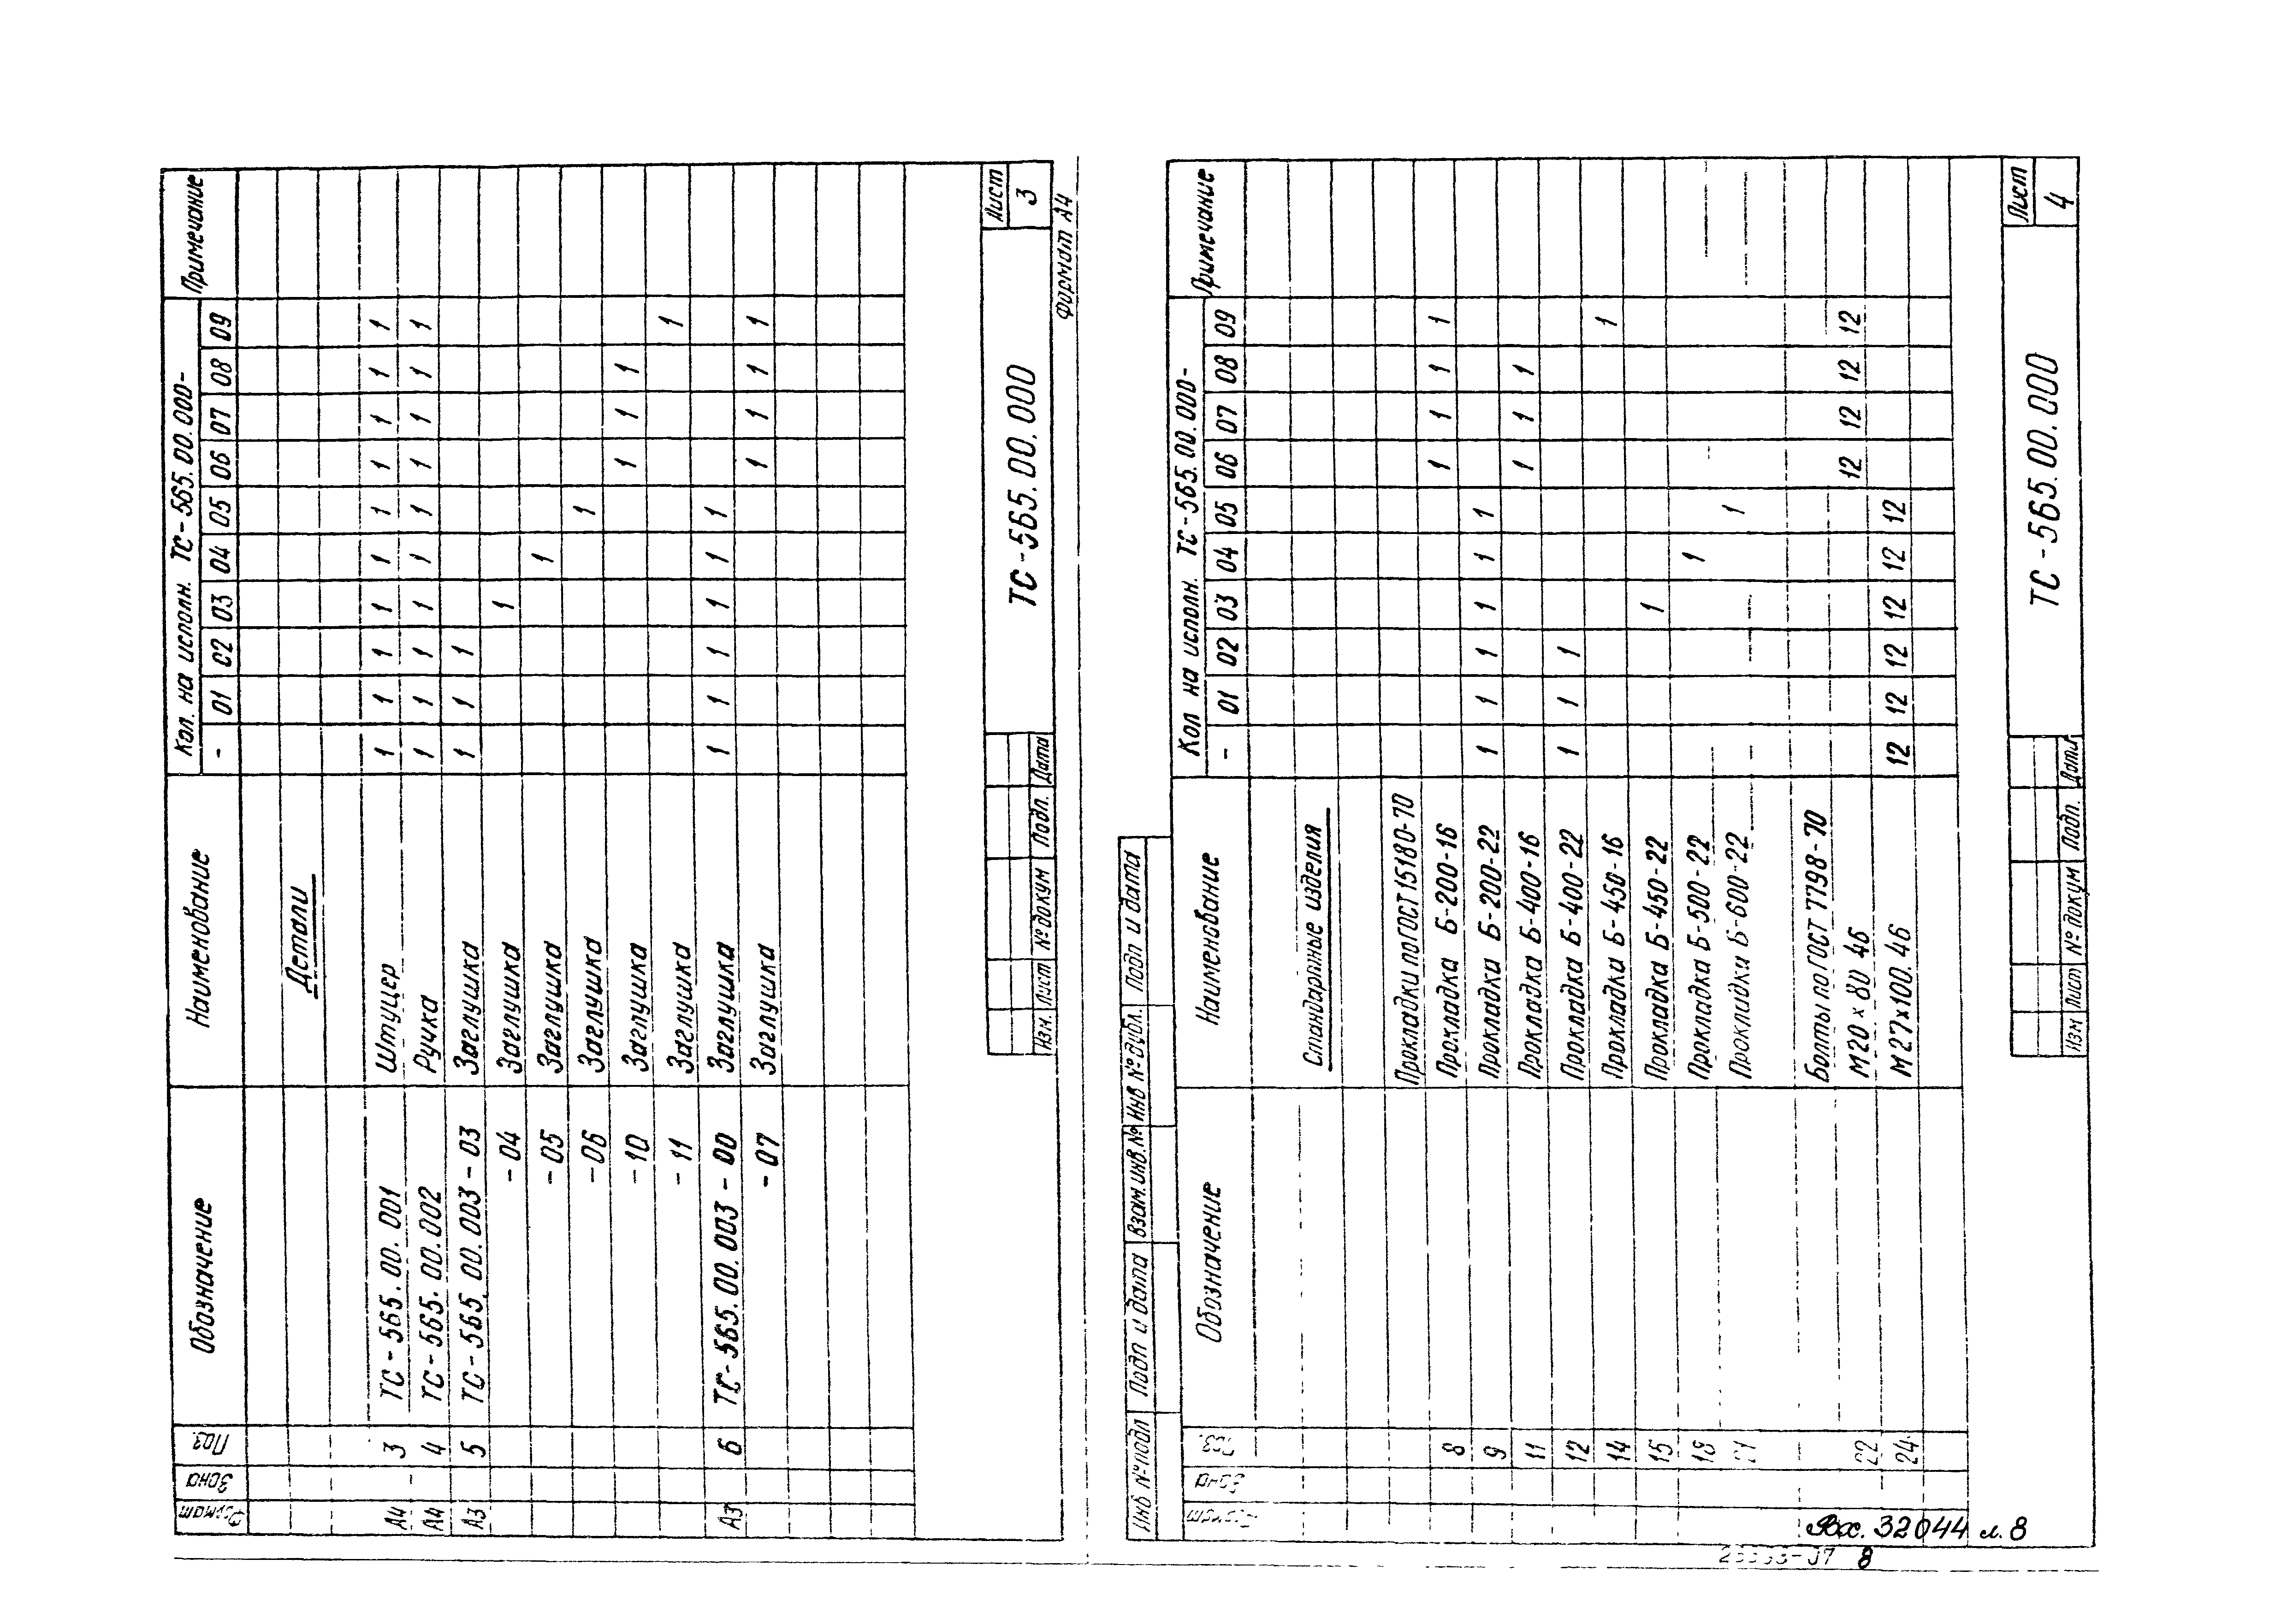 Формат Зона Поз. Обозначение Наименование Кол. на исполн. ТС-565.00.000- Примечание
- 01 02 03 04 05 06 07 08 09
Детали
А4 3 ТС-565.00.001 Штуцер 1 1 1 1 1 1 1 1 1 1
А4 4 ТС-565.00.002 Ручка 1 1 1 1 1 1 1 1 1 1
А3 5 ТС-565.00.003-03 Заглушка 1 1 1
-04 Заглушка 1
-05 Заглушка 1
-06 Заглушка 1
-10 Заглушка 1 1 1
-11 Заглушка 1
А3 6 ТС-565.00.003-00 Заглушка 1 1 1 1 1 1
-07 Заглушка 1 1 1 1
Изм. Лист № докум Подп. Дата
ТС-565.00.000
Лист
3
Формат А4
Инв № подл Подп и дата Взам.инв.№ Инв № дубл. Подп и дата
Формат Зона Поз. Обозначение Наименование Кол на исполн. ТС-565.00.000- Примечание
- 01 02 03 04 05 06 07 08 09
Стандартные изделия
Прокладки по ГОСТ 15180-70
8 Прокладка Б-200-16 1 1 1 1
9 Прокладка Б-200-22 1 1 1 1 1 1
11 Прокладка Б-400-16 1 1 1
12 Прокладка Б-400-22 1 1 1
14 Прокладка Б-450-16 1
15 Прокладка Б-450-22 1
18 Прокладка Б-500-22 1
Прокладка Б-600-22 1
Болты по ГОСТ 7798-70
22 М20×80 46 12 12 12 12
24 М27×100.46 12 12 12 12 12 12
Изм Лист № докум Подп. Дата
ТС-565.00.000
Лист
4
Вх. 32044 л. 8
8